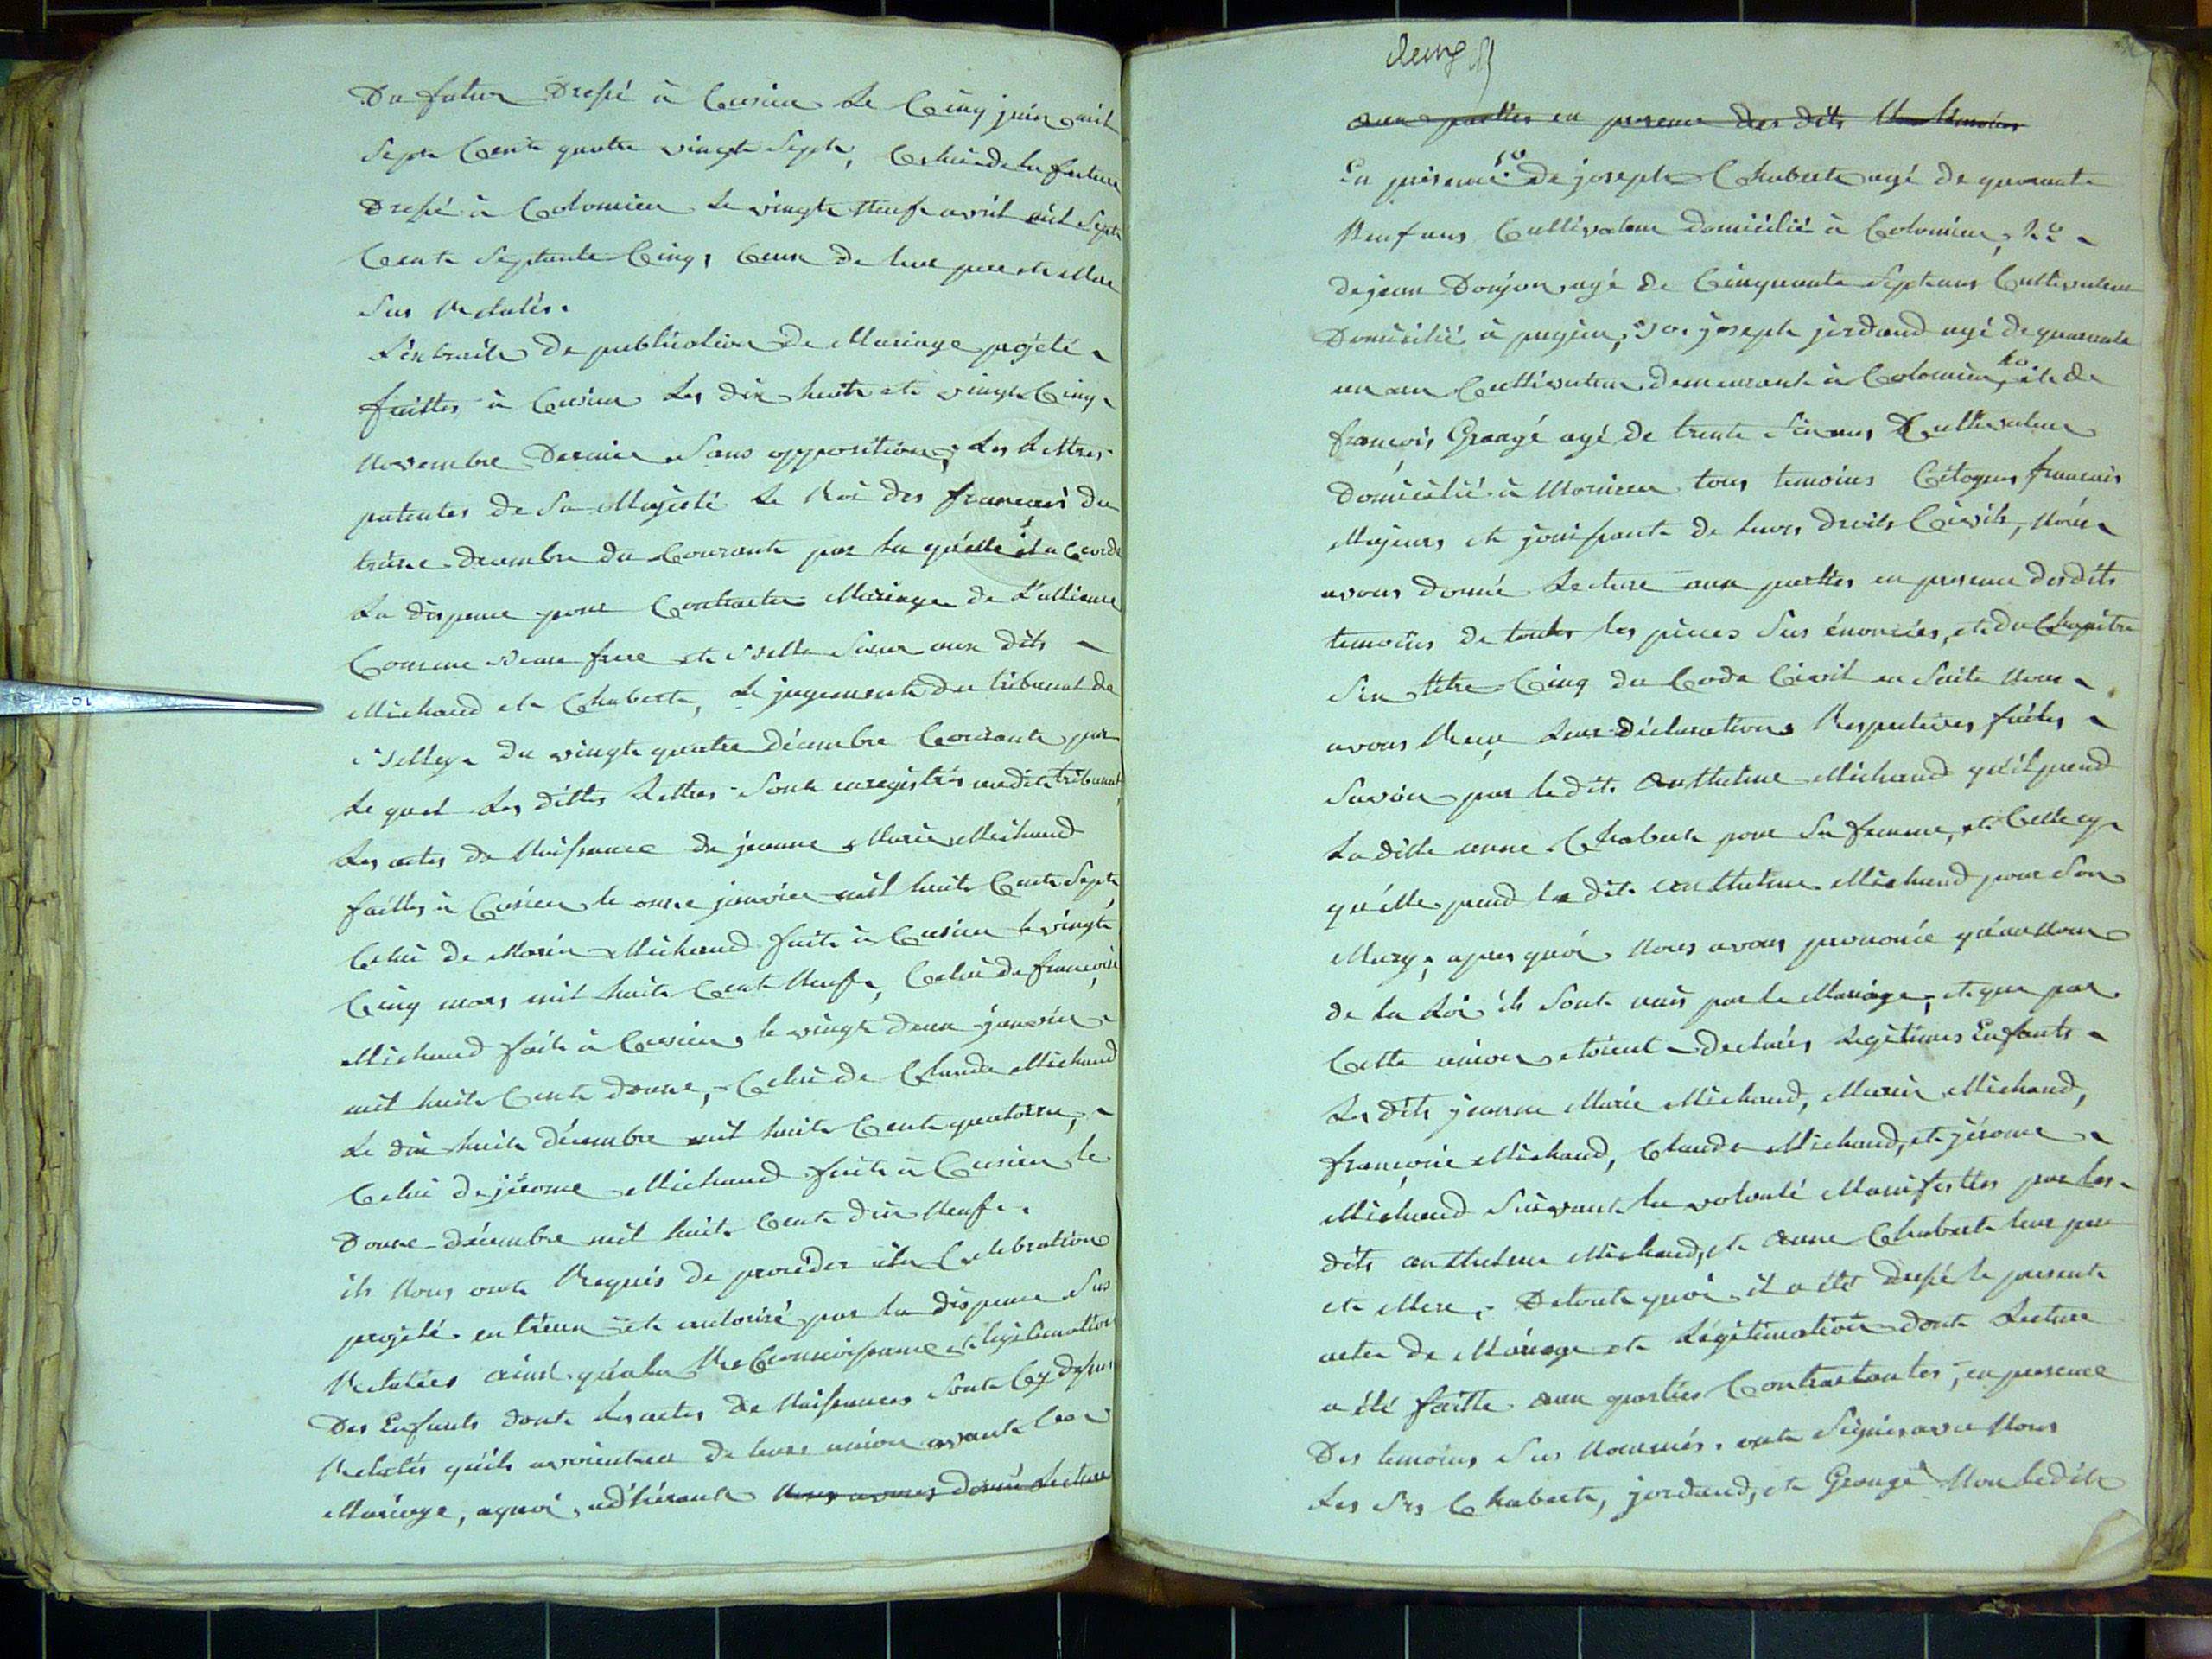 Du futur Dressé à Cusieu Le Cinq juin mil
Sept Cent quatre vingt Sept, Celui de la future
Dressé à Colomieu Le vingt Neuf avril mil Sept
Cent Septante Cinq, Ceux de leur pere et Mere
Sus Relatés.
L'extrait de publication de Mariage projeté
faittes à Cusieu Les dix huit et vingt Cinq
Novembre Dernier Sans opposition; Les Lettres
patentes de Sa Majesté Le Roi des français du
treize decembre du Courant par la quelle il accorde
La dispence pour Contracter Mariage de L'alliance
Comme Beau frere et Belle Sœur aux dits
Michaud et Chabert, Le jugement du tribunal de
Belley du vingt quatre décembre Courant par
Le quel Les dittes Lettres Sont enregistrés audit tribunal
Les actes de Naissance de jeanne Marie Michaud
faittes à Cusieu le onze janvier mil huit Cent Sept
Celui de Marie Michaud fait à Cusieu le vingt
Cinq mars mil huit Cent Neuf, Celui de françoise
Michaud fait à Cusieu le vingt deux janvier
mil huit Cent douze, Celui de Claude Michaud
Le dix huit décembre mil huit Cent quatorze,
Celui de jérome Michaud fait à Cusieu le
Douze décembre mil huit Cent dix Neuf.
ils Nous ont Requis de proceder à la Celebration
projeté entreux et autorisé par la dispence Sus
Relatées ainsi qu'a la ReConnoissance et legitimation
Des Enfants dont Les actes de Naissances Sont Cy dessus
Relatés qu'ils avoient eu de leur union avant leur
Mariage, aquoi adhérant Nous avons donné Lecture
aux parties en presence des dits temoins
En présence 1° De joseph Chabert agé de quarante
Neuf ans Cultivateur Domicilié à Colomieu, 2°
de jean Donjon agé de Cinquante Sept ans Cultivateur
Domicilié à pugieu, 3° joseph jordand agé de quarante
un an Cultivateur demeurant à Colomieu, 4° et de
françois Grangé agé de trente Six ans Cultivateur
Domicilié à Marieu tous temoins Citoyens français
Majeurs et jouissant de leurs droits Civils, Nous
avons donné Lecture aux parties en presence desdits
temoins de toutes les pièces Sus énoncées, et du Chapitre
Six titre Cinq du Code Civil en Suite Nous
avons Reçu Leur déclarations Respectives faites
Savoir par ledit Anthelme Michaud qu'il prend
La ditte anne Chabert pour Sa femme, et Celle cy
qu'elle prend le dit anthelme Michaud pour Son
Mary, apres quoi Nous avons prononcé qu'au Nom
de la Loi ils Sont unis par le Mariage, et que par
Cette union etoient declarés Legitimes Enfants
Les dits jeanne Marie Michaud, Marie Michaud,
françoise Michaud, Claude Michaud, et jérome
Michaud Suivant la volonté Manifestées par les
dits anthelme Michaud, et anne Chabert leur pere
et Mere, De tout quoi il a été dressé le present
acte de Mariage et Légitimation dont Lecture
a été faitte aux parties Contractantes, en presence
Des temoins Sus Nommés. ont Signés avec Nous
Les Srs Chabert, jordand, et Grangé Non ledit